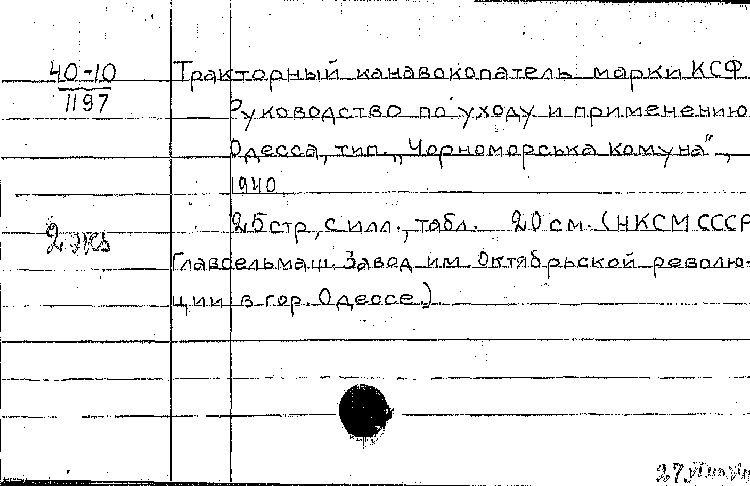 40-10
1197
Тракторный канавокопатель марки КСФ.
Руководство по уходу и применению
Одесса, тип. „Чорноморська комуна",
1940.
25 стр, с илл., табл. 20 см. (НКСМ СССР
2 экз
Главсельмаш. Завод им. Октябрьской револю-
ции в гор. Одессе.)
27